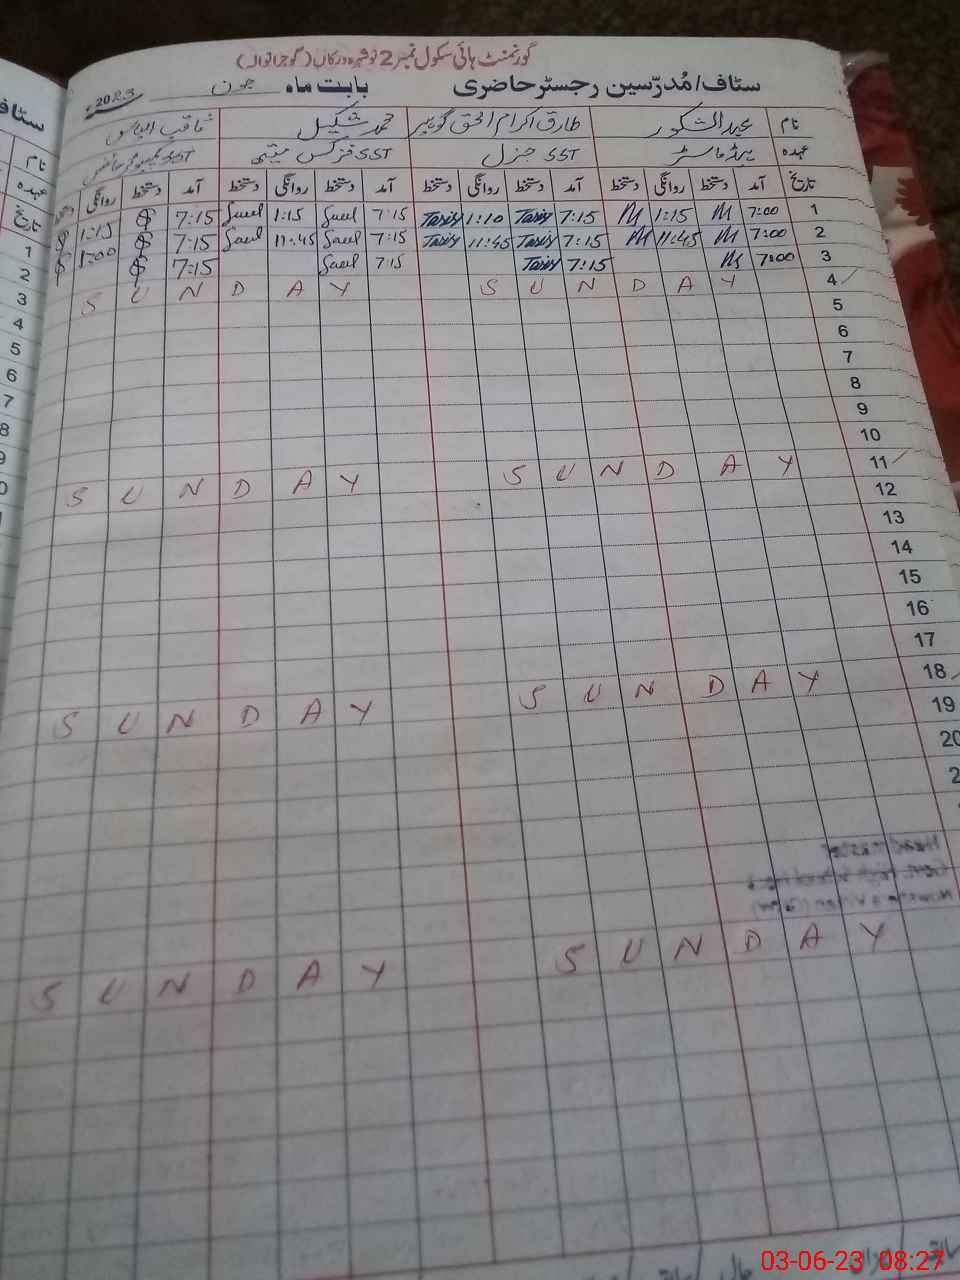 گورنمنٹ ہائی سکول نمبر 2 نوشہرہ ورکاں (گوجرانوالہ)
سٹاف/مُدرّسین رجسٹر حاضری بابت ماہ جون 2023ء
نام عبدالشکور طارق اکرام الحق گوہیر محمد شکیل ثاقب الیاس
عہدہ ہیڈ ماسٹر SST جنرل SST فزکس میتھ SST کمپیوٹر سائنس
تاریخ آمد دستخط روانگی دستخط آمد دستخط روانگی دستخط آمد دستخط روانگی دستخط آمد دستخط روانگی دستخط
1 7:00 M 1:15 M 7:15 Tariq 1:10 Tariq 7:15 Saeel 1:15 Saeel 7:15 1:15
2 7:00 M 11:45 M 7:15 Tariq 11:45 Tariq 7:15 Saeel 11:45 Saeel 7:15 1:00
3 7:00 M 7:15 Tariq 7:15 Saeel 7:15
4 SUNDAY SUNDAY
5
6
7
8
9
10
11 SUNDAY SUNDAY
12
13
14
15
16
17
18 SUNDAY SUNDAY
19
20
2
SUNDAY SUNDAY
سٹاف
نام
عہدہ
تاریخ
1
2
3
4
5
6
7
8
9
0
03-06-23 08:27